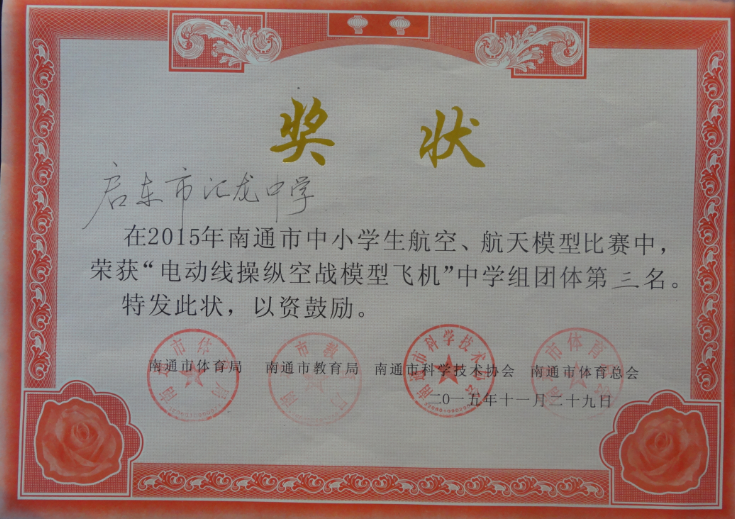 奖状
启东市汇龙中学
在2015年南通市中小学生航空、航天模型比赛中,
荣获“电动线操纵空战模型飞机”中学组团体第三名。
特发此状，以资鼓励。
南通市体育局 南通市教育局 南通市科学技术协会 南通市体育总会
二〇一五年十一月二十九日